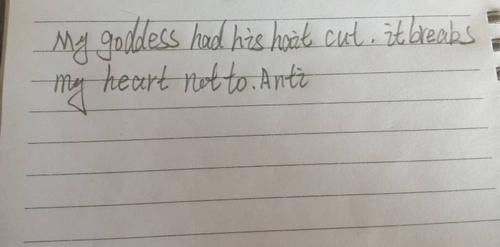 My goddess had his hait cut. it breabs
my heart not to. Anti